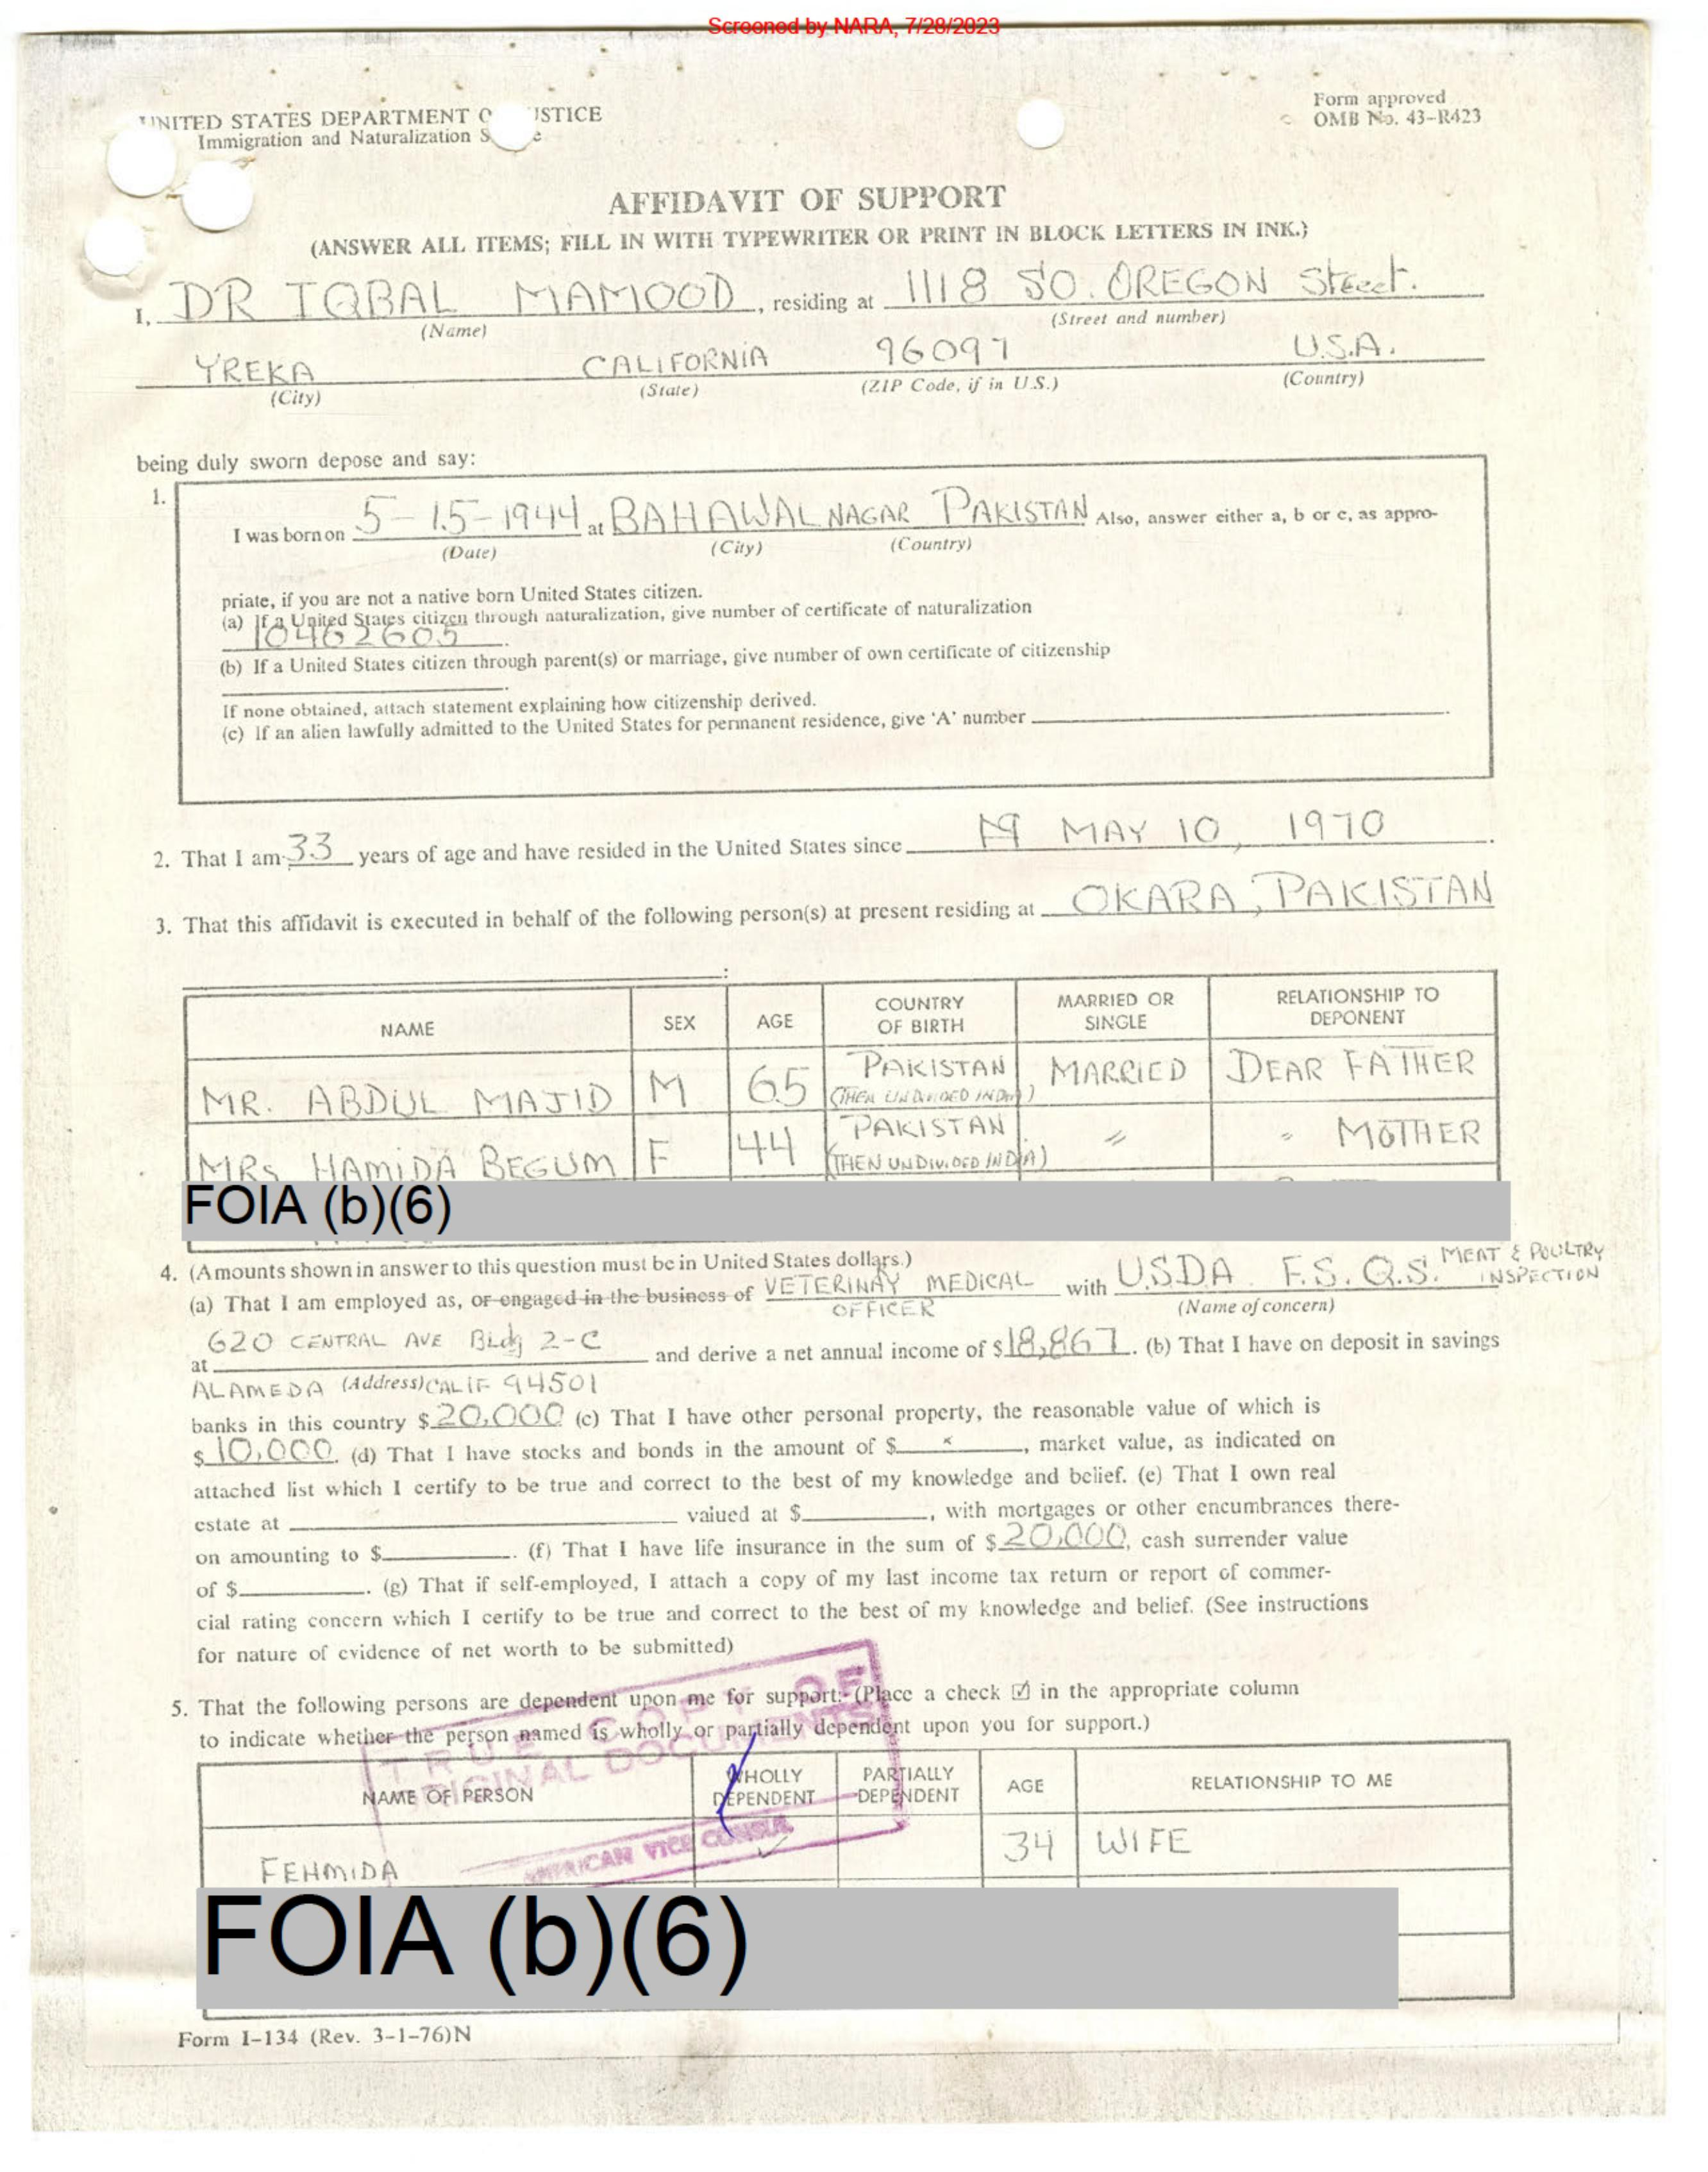 Screened by NARA, 7/28/2023
UNITED STATES DEPARTMENT O USTICE
Immigration and Naturalization S e
Form approved
OMB No. 43-R423
AFFIDAVIT OF SUPPORT
(ANSWER ALL ITEMS; FILL IN WITH TYPEWRITER OR PRINT IN BLOCK LETTERS IN INK.)
I, DR IQBAL MAMOOD, residing at 1118 SO. OREGON Street.
(Name) (Street and number)
YREKA CALIFORNIA 96097 U.S.A.
(City) (State) (ZIP Code, if in U.S.) (Country)
being duly sworn depose and say:
1.
I was born on 5-15-1944 at BAHAWALNAGAR PAKISTAN Also, answer either a, b or c, as appro-
(Date) (City) (Country)
priate, if you are not a native born United States citizen.
(a) If a United States citizen through naturalization, give number of certificate of naturalization
10462605.
(b) If a United States citizen through parent(s) or marriage, give number of own certificate of citizenship
If none obtained, attach statement explaining how citizenship derived.
(c) If an alien lawfully admitted to the United States for permanent residence, give 'A' number
2. That I am 33 years of age and have resided in the United States since MAY 10, 1970.
3. That this affidavit is executed in behalf of the following person(s) at present residing at OKARA, PAKISTAN
NAME SEX AGE COUNTRY OF BIRTH MARRIED OR SINGLE RELATIONSHIP TO DEPONENT
MR. ABDUL MAJID M 65 PAKISTAN (THEN UNDIVIDED INDIA) MARRIED DEAR FATHER
MRS HAMIDA BEGUM F 44 PAKISTAN (THEN UNDIVIDED INDIA) " " MOTHER
FOIA (b)(6)
4. (Amounts shown in answer to this question must be in United States dollars.)
(a) That I am employed as, or engaged in the business of VETERINAY MEDICAL OFFICER with U.S.D.A. F.S.Q.S. MEAT & POULTRY INSPECTION
(Name of concern)
at 620 CENTRAL AVE Bldg 2-C and derive a net annual income of $18,867. (b) That I have on deposit in savings
ALAMEDA (Address) CALIF 94501
banks in this country $20,000 (c) That I have other personal property, the reasonable value of which is
$10,000. (d) That I have stocks and bonds in the amount of $ , market value, as indicated on
attached list which I certify to be true and correct to the best of my knowledge and belief. (e) That I own real
estate at valued at $ , with mortgages or other encumbrances there-
on amounting to $ . (f) That I have life insurance in the sum of $20,000, cash surrender value
of $ . (g) That if self-employed, I attach a copy of my last income tax return or report of commer-
cial rating concern which I certify to be true and correct to the best of my knowledge and belief. (See instructions
for nature of evidence of net worth to be submitted)
5. That the following persons are dependent upon me for support:- (Place a check ☑ in the appropriate column
to indicate whether the person named is wholly or partially dependent upon you for support.)
TRUE COPY OF
ORIGINAL DOCUMENTS
AMERICAN VICE CONSUL
NAME OF PERSON WHOLLY DEPENDENT PARTIALLY DEPENDENT AGE RELATIONSHIP TO ME
FEHMIDA ✓ 34 WIFE
FOIA (b)(6)
Form I-134 (Rev. 3-1-76)N